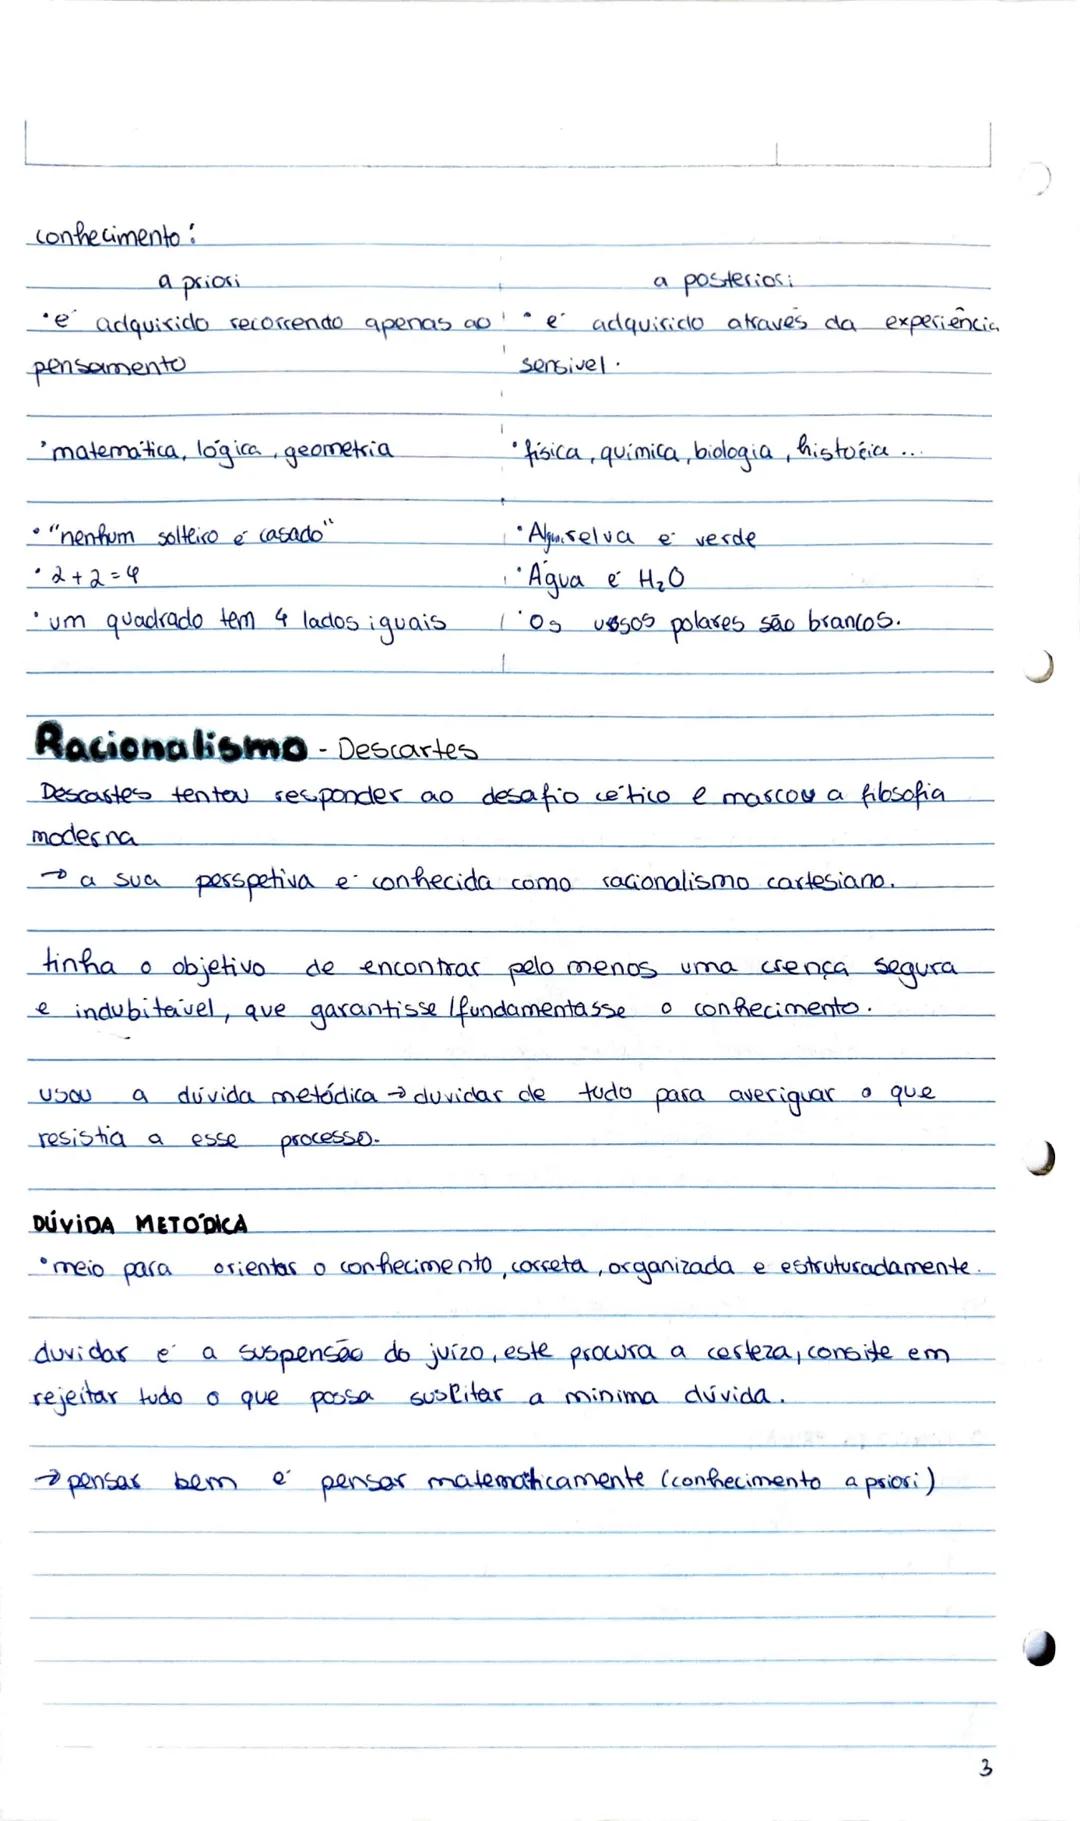 conhecimento:
a priori
a posteriori
• é adquirido recorrendo apenas ao
pensamento
• é adquirido através da experiência
sensivel.
• matemática, lógica, geometria
• física, química, biologia, história ...
• "nenhum solteiro é casado"
• 2 + 2 = 4
• um quadrado tem 4 lados iguais
• relva é verde
• Água é H₂O
• Os ursos polares são brancos.
Racionalismo - Descartes
Descartes tentou responder ao desafio cético e marcou a filosofia
moderna
→ a sua perspetiva é conhecida como racionalismo cartesiano.
tinha o objetivo de encontrar pelo menos uma crença segura
e indubitável, que garantisse / fundamentasse o conhecimento.
usou a dúvida metódica → duvidar de tudo para averiguar o que
resistia a esse processo.
DÚVIDA METÓDICA
• meio para orientar o conhecimento, correta, organizada e estruturadamente.
duvidar é a suspensão do juízo, este procura a certeza, consite em
rejeitar tudo o que possa suscitar a minima dúvida.
→ pensar bem é pensar matematicamente (conhecimento a priori)
3